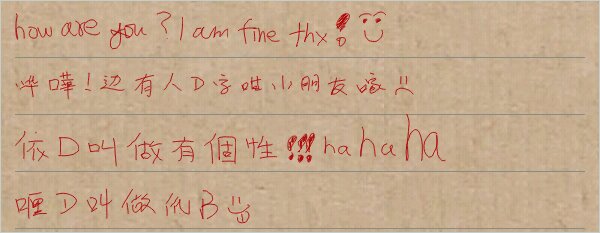 how are you? I am fine thx!
哗嘩！边有人D字咁小朋友
依D叫做有個性!!! ha ha ha
喱D叫做低B